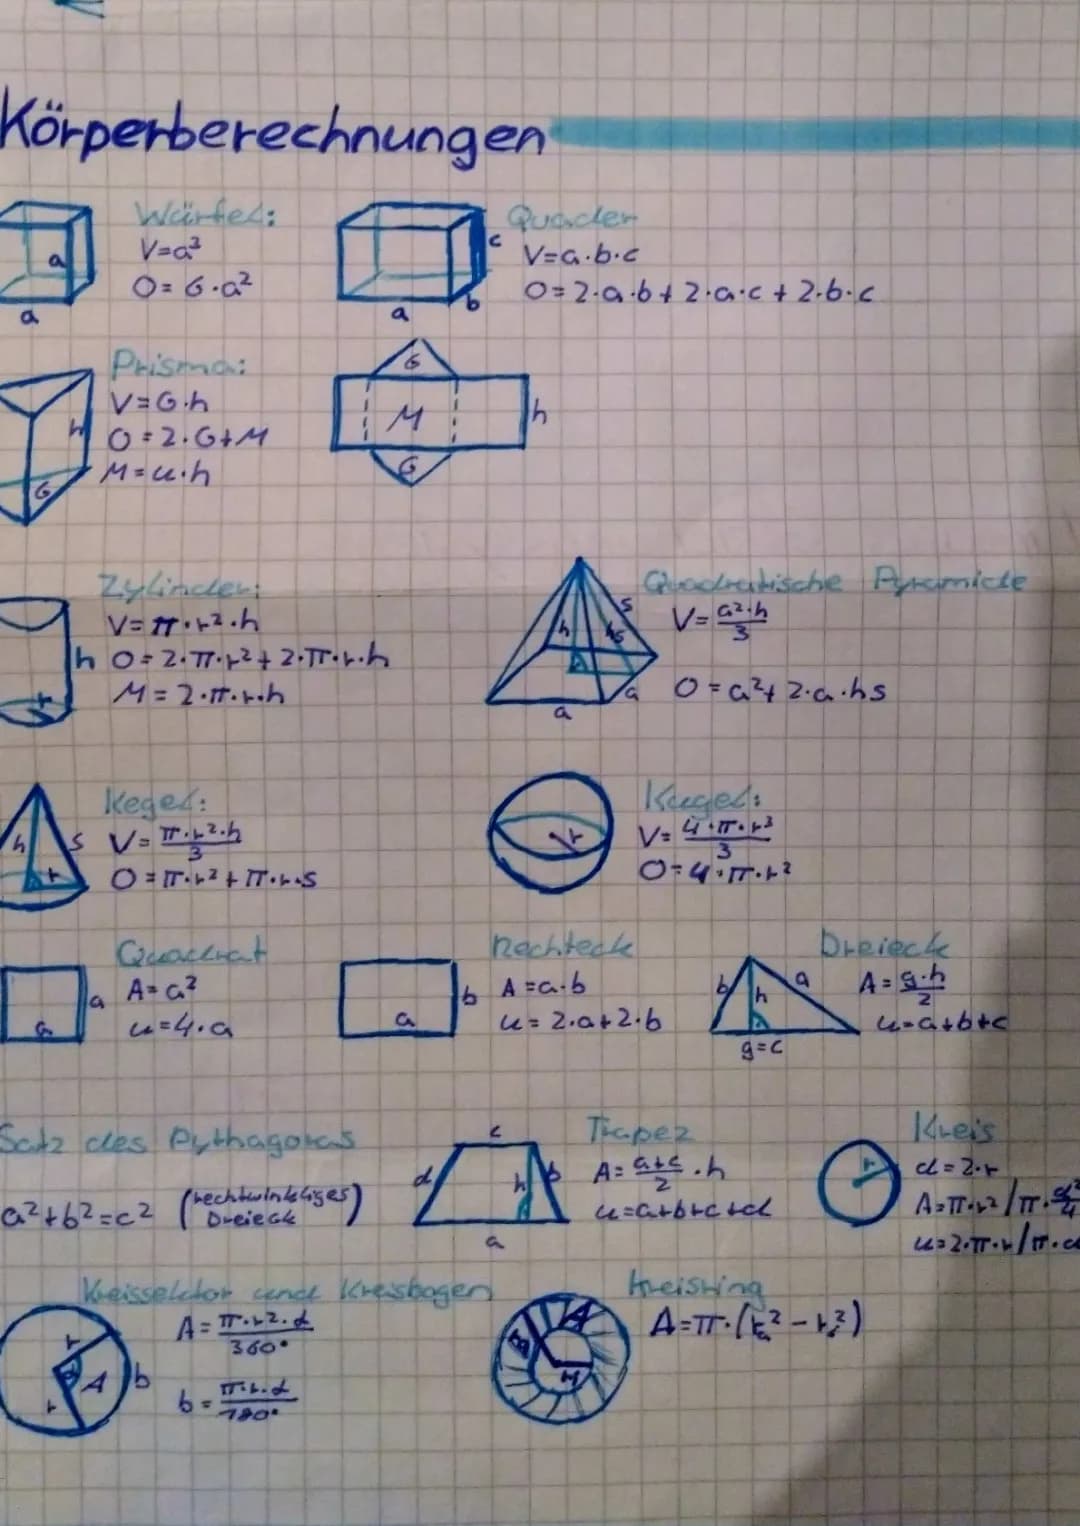 Körperberechnungen
Würfel:
V=a³
O=6·a²
a
a
Quader
V=a·b·c
O=2·a·b+2·a·c+2·b·c
c
b
a
Prisma:
V=G·h
O=2·G+M
M=u·h
h
G
G
M
h
G
Zylinder:
V=π·r²·h
O=2·π·r²+2·π·r·h
M=2·π·r·h
h
r
Quadratische Pyramide
V=a²·h/3
O=a²+2·a·hs
s
h
hs
a
a
Kegel:
V=π·r²·h/3
O=π·r²+π·r·s
h
s
r
Kugel:
V=4·π·r³/3
O=4·π·r²
r
Quadrat
A=a²
u=4·a
a
a
Rechteck
A=a·b
u=2·a+2·b
b
a
Dreieck
A=g·h/2
u=a+b+c
b
h
a
g=c
Satz des Pythagoras
a²+b²=c² (rechtwinkliges Dreieck)
Trapez
A=a+c/2·h
u=a+b+c+d
c
d
h
b
a
Kreis
d=2·r
A=π·r²/π·d²/4
u=2·π·r/π·d
r
Kreissektor und Kreisbogen
A=π·r²·α/360°
b=π·r·α/180°
r
α
A
b
r
Kreisring
A=π·(rₐ²-rᵢ²)
A
B
M